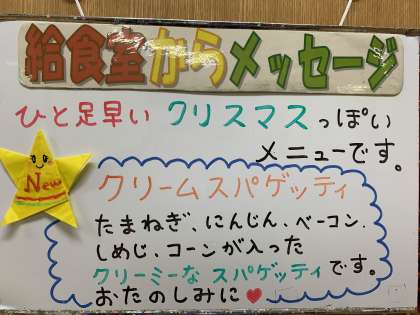 給食室からメッセージ
ひと足早い クリスマスっぽい
メニューです。
New
クリームスパゲッティ
たまねぎ、にんじん、ベーコン、
しめじ、コーンが入った
クリーミーな スパゲッティです。
おたのしみに♥